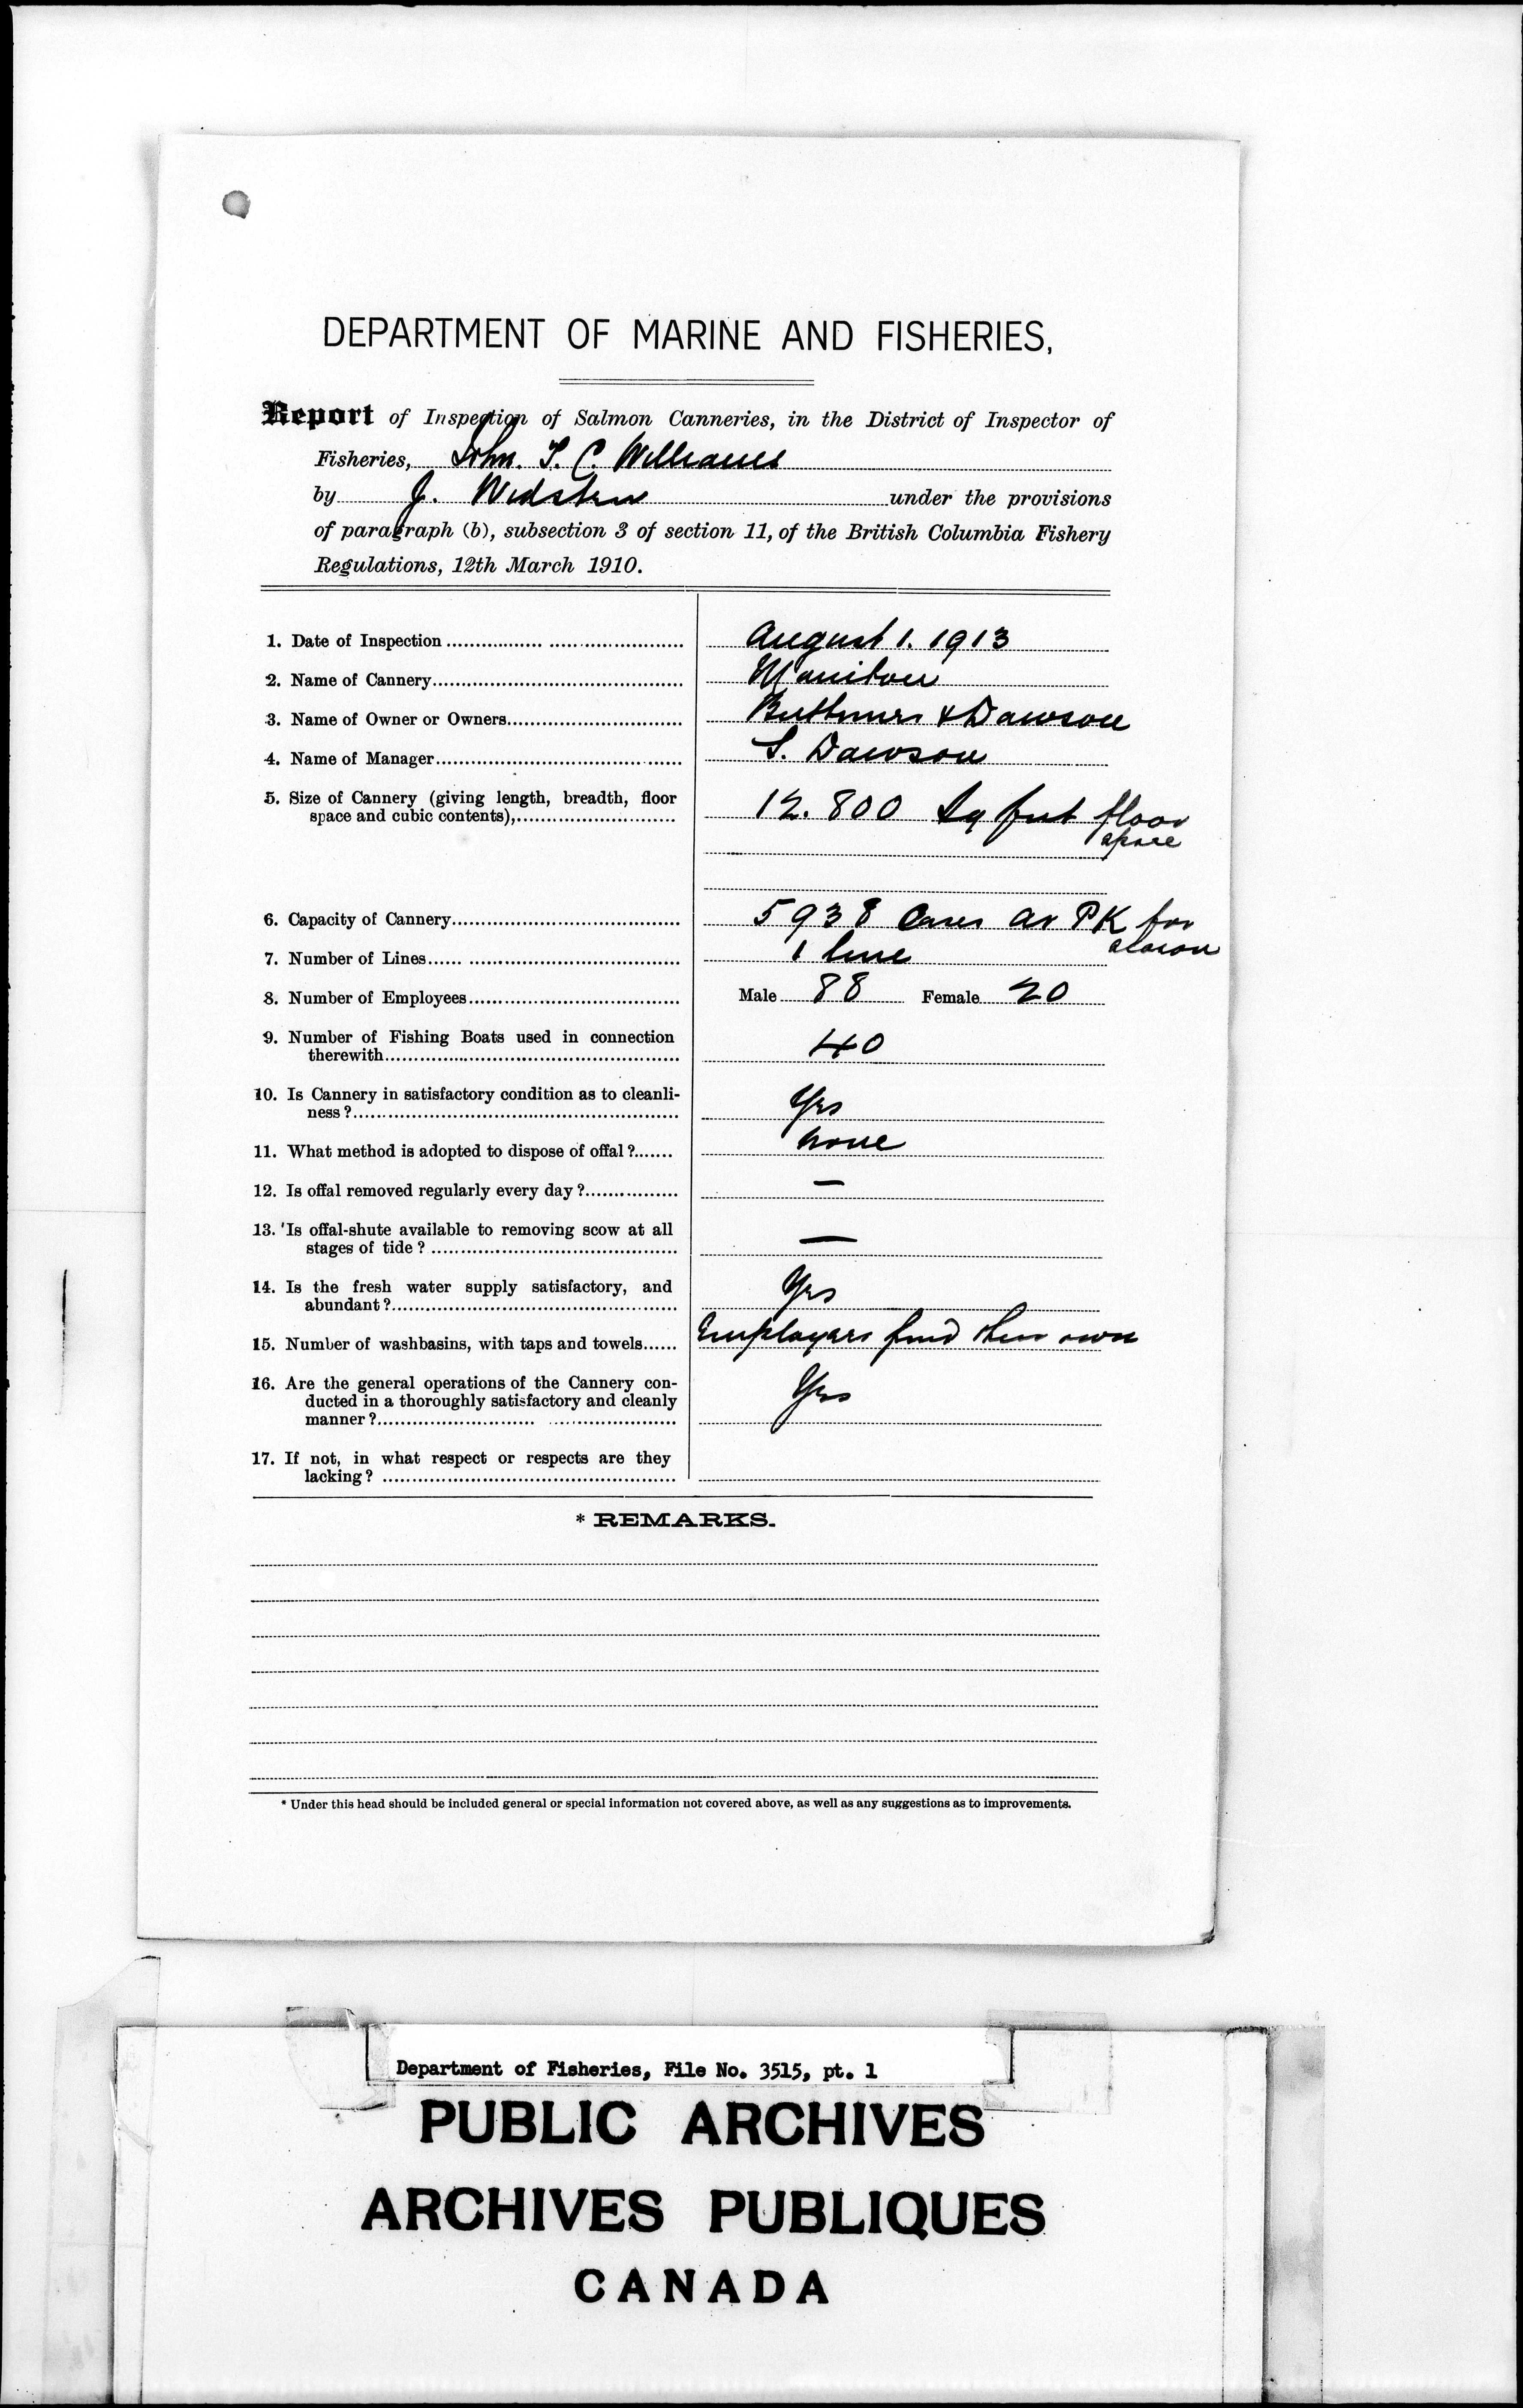 DEPARTMENT OF MARINE AND FISHERIES,
Report of Inspection of Salmon Canneries, in the District of Inspector of
Fisheries, John. T. C. Williams
by J. Widsten under the provisions
of paragraph (b), subsection 3 of section 11, of the British Columbia Fishery
Regulations, 12th March 1910.
1. Date of Inspection August 1. 1913
2. Name of Cannery Manitou
3. Name of Owner or Owners & Dawson
4. Name of Manager S. Dawson
5. Size of Cannery (giving length, breadth, floor
space and cubic contents), 12.800 Sq feet floor
space
6. Capacity of Cannery 5938 Cases av PK for
season
7. Number of Lines 1 line
8. Number of Employees Male 88 Female 20
9. Number of Fishing Boats used in connection
therewith 40
10. Is Cannery in satisfactory condition as to cleanli-
ness? Yes
11. What method is adopted to dispose of offal? none
12. Is offal removed regularly every day? —
13. 'Is offal-shute available to removing scow at all
stages of tide? —
14. Is the fresh water supply satisfactory, and
abundant? Yes
15. Number of washbasins, with taps and towels Employers find their own
16. Are the general operations of the Cannery con-
ducted in a thoroughly satisfactory and cleanly
manner? Yes
17. If not, in what respect or respects are they
lacking?
* REMARKS.
* Under this head should be included general or special information not covered above, as well as any suggestions as to improvements.
Department of Fisheries, File No. 3515, pt. 1
PUBLIC ARCHIVES
ARCHIVES PUBLIQUES
CANADA